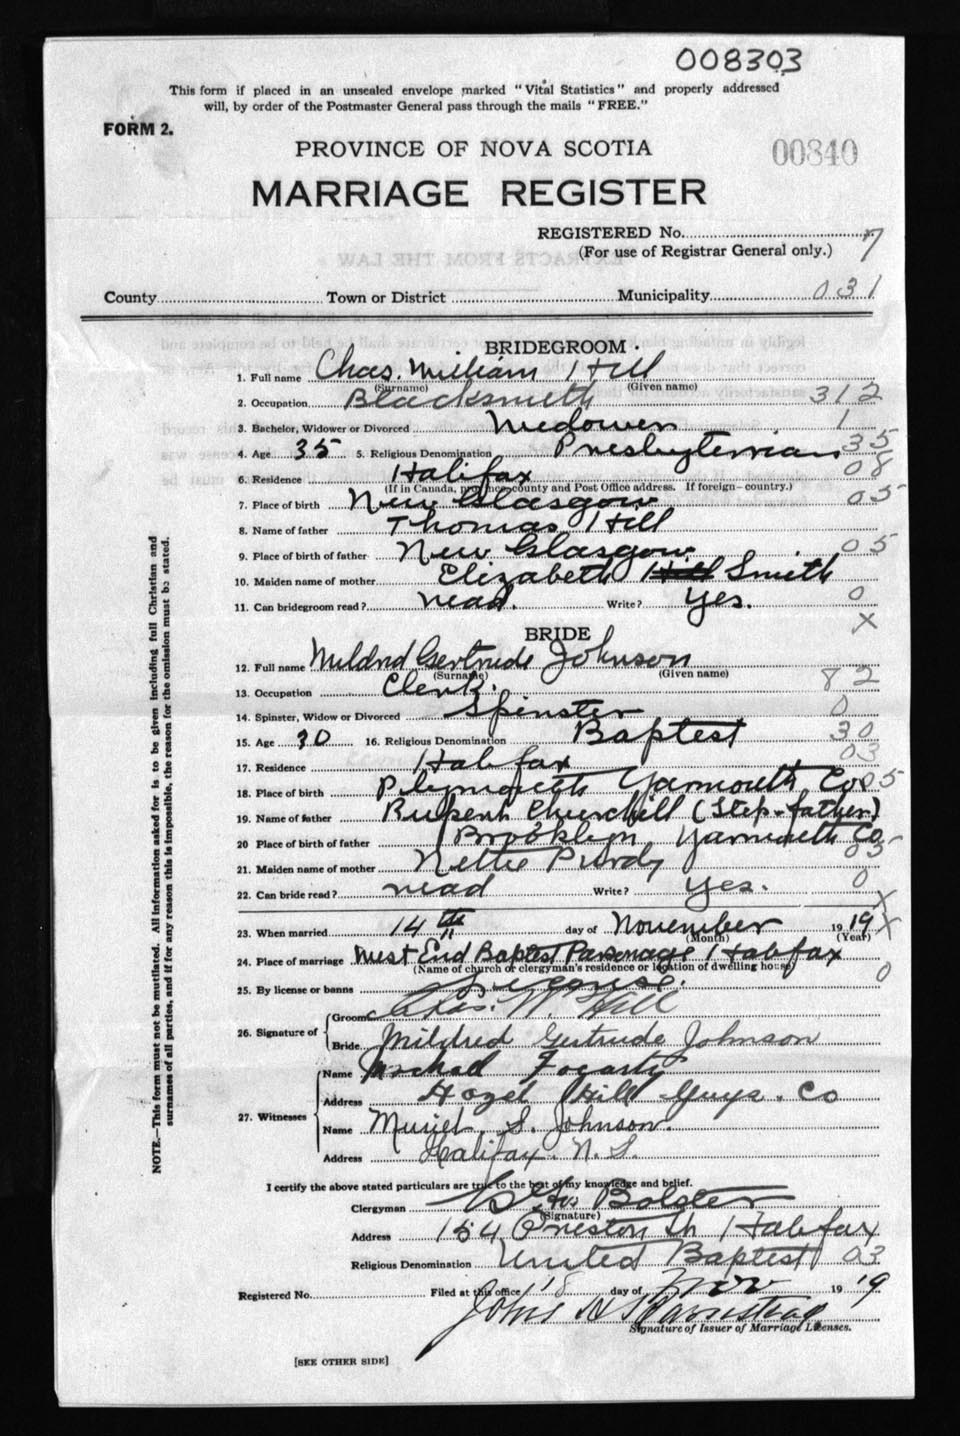 008303
This form if placed in an unsealed envelope marked "Vital Statistics" and properly addressed
will, by order of the Postmaster General pass through the mails "FREE."
FORM 2.
PROVINCE OF NOVA SCOTIA
00840
MARRIAGE REGISTER
REGISTERED No. 7
(For use of Registrar General only.)
County Town or District Municipality 031
BRIDEGROOM.
1. Full name Chas. William Hill
(Surname) (Given name)
2. Occupation Blacksmith 312
3. Bachelor, Widower or Divorced Widower 1
4. Age 35 5. Religious Denomination Presbyterian 35
6. Residence Halifax 08
(If in Canada, province, county and Post Office address. If foreign—country.)
7. Place of birth New Glasgow 05
8. Name of father Thomas Hill
9. Place of birth of father New Glasgow 05
10. Maiden name of mother Elizabeth Hill Smith
11. Can bridegroom read? read. Write? Yes. 0
X
BRIDE
12. Full name Mildred Gertrude Johnson
(Surname) (Given name)
13. Occupation Clerk. 82
14. Spinster, Widow or Divorced Spinster 0
15. Age 30 16. Religious Denomination Baptist 30
17. Residence Halifax 03
18. Place of birth Plymouth Yarmouth Co 05
19. Name of father Rupert Churchill (Step-father)
20 Place of birth of father Brooklyn Yarmouth Co
21. Maiden name of mother Nettie Purdy 05
22. Can bride read? read Write? Yes. 0
X
23. When married 14th day of November 1919 X
(Month) (Year)
24. Place of marriage West End Baptist Parsonage Halifax
(Name of church or clergyman's residence or location of dwelling house) 0
25. By license or banns License.
26. Signature of
Groom Chas. W. Hill
Bride Mildred Gertrude Johnson
27. Witnesses
Name Michael Fogarty
Address Hazel Hill Guys. Co
Name Muriel S. Johnson.
Address Halifax. N. S.
I certify the above stated particulars are true to the best of my knowledge and belief.
Clergyman Bolster
(Signature)
Address 154 Preston St Halifax
Religious Denomination United Baptist 03
Registered No. Filed at this office 18 day of Nov 1919
John
Signature of Issuer of Marriage Licenses.
[SEE OTHER SIDE]
NOTE.—This form must not be mutilated. All information asked for is to be given including full Christian and
surnames of all parties, and if for any reason this is impossible, the reason for the omission must be stated.